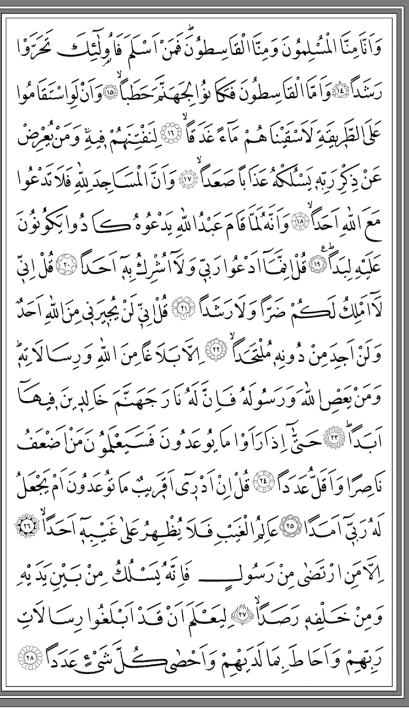 وَاَنَّا مِنَّا الْمُسْلِمُونَ وَمِنَّا الْقَاسِطُونَۜ فَمَنْ اَسْلَمَ فَاُو۬لٰٓئِكَ تَحَرَّوْا
رَشَداً ﴿١٤﴾ وَاَمَّا الْقَاسِطُونَ فَكَانُوا لِجَهَنَّمَ حَطَباًۙ ﴿١٥﴾ وَاَنْ لَوِ اسْتَقَامُوا
عَلَى الطَّر۪يقَةِ لَاَسْقَيْنَاهُمْ مَٓاءً غَدَقاًۙ ﴿١٦﴾ لِنَفْتِنَهُمْ ف۪يهِۜ وَمَنْ يُعْرِضْ
عَنْ ذِكْرِ رَبِّه۪ يَسْلُكْهُ عَذَاباً صَعَداًۙ ﴿١٧﴾ وَاَنَّ الْمَسَاجِدَ لِلّٰهِ فَلَا تَدْعُوا
مَعَ اللّٰهِ اَحَداًۙ ﴿١٨﴾ وَاَنَّهُ لَمَّا قَامَ عَبْدُ اللّٰهِ يَدْعُوهُ كَادُوا يَكُونُونَ
عَلَيْهِ لِبَداًۜ ﴿١٩﴾ قُلْ اِنَّمَٓا اَدْعُوا رَبّ۪ي وَلَٓا اُشْرِكُ بِه۪ٓ اَحَداً ﴿٢٠﴾ قُلْ اِنّ۪ي
لَٓا اَمْلِكُ لَكُمْ ضَراًّ وَلَا رَشَداً ﴿٢١﴾ قُلْ اِنّ۪ي لَنْ يُج۪يرَن۪ي مِنَ اللّٰهِ اَحَدٌ
وَلَنْ اَجِدَ مِنْ دُونِه۪ مُلْتَحَداًۙ ﴿٢٢﴾ اِلَّا بَلَاغاً مِنَ اللّٰهِ وَرِسَالَاتِه۪ۜ
وَمَنْ يَعْصِ اللّٰهَ وَرَسُولَهُ فَاِنَّ لَهُ نَارَ جَهَنَّمَ خَالِد۪ينَ ف۪يهَٓا
اَبَداًۜ ﴿٢٣﴾ حَتّٰٓى اِذَا رَاَوْا مَا يُوعَدُونَ فَسَيَعْلَمُونَ مَنْ اَضْعَفُ
نَاصِراً وَاَقَلُّ عَدَداً ﴿٢٤﴾ قُلْ اِنْ اَدْر۪ٓي اَقَر۪يبٌ مَا تُوعَدُونَ اَمْ يَجْعَلُ
لَهُ رَبّ۪ٓي اَمَداً ﴿٢٥﴾ عَالِمُ الْغَيْبِ فَلَا يُظْهِرُ عَلٰى غَيْبِه۪ٓ اَحَداًۙ ﴿٢٦﴾
اِلَّا مَنِ ارْتَضٰى مِنْ رَسُولٍ فَاِنَّهُ يَسْلُكُ مِنْ بَيْنِ يَدَيْهِ
وَمِنْ خَلْفِه۪ رَصَداًۙ ﴿٢٧﴾ لِيَعْلَمَ اَنْ قَدْ اَبْلَغُوا رِسَالَاتِ
رَبِّهِمْ وَاَحَاطَ بِمَا لَدَيْهِمْ وَاَحْصٰى كُلَّ شَيْءٍ عَدَداً ﴿٢٨﴾